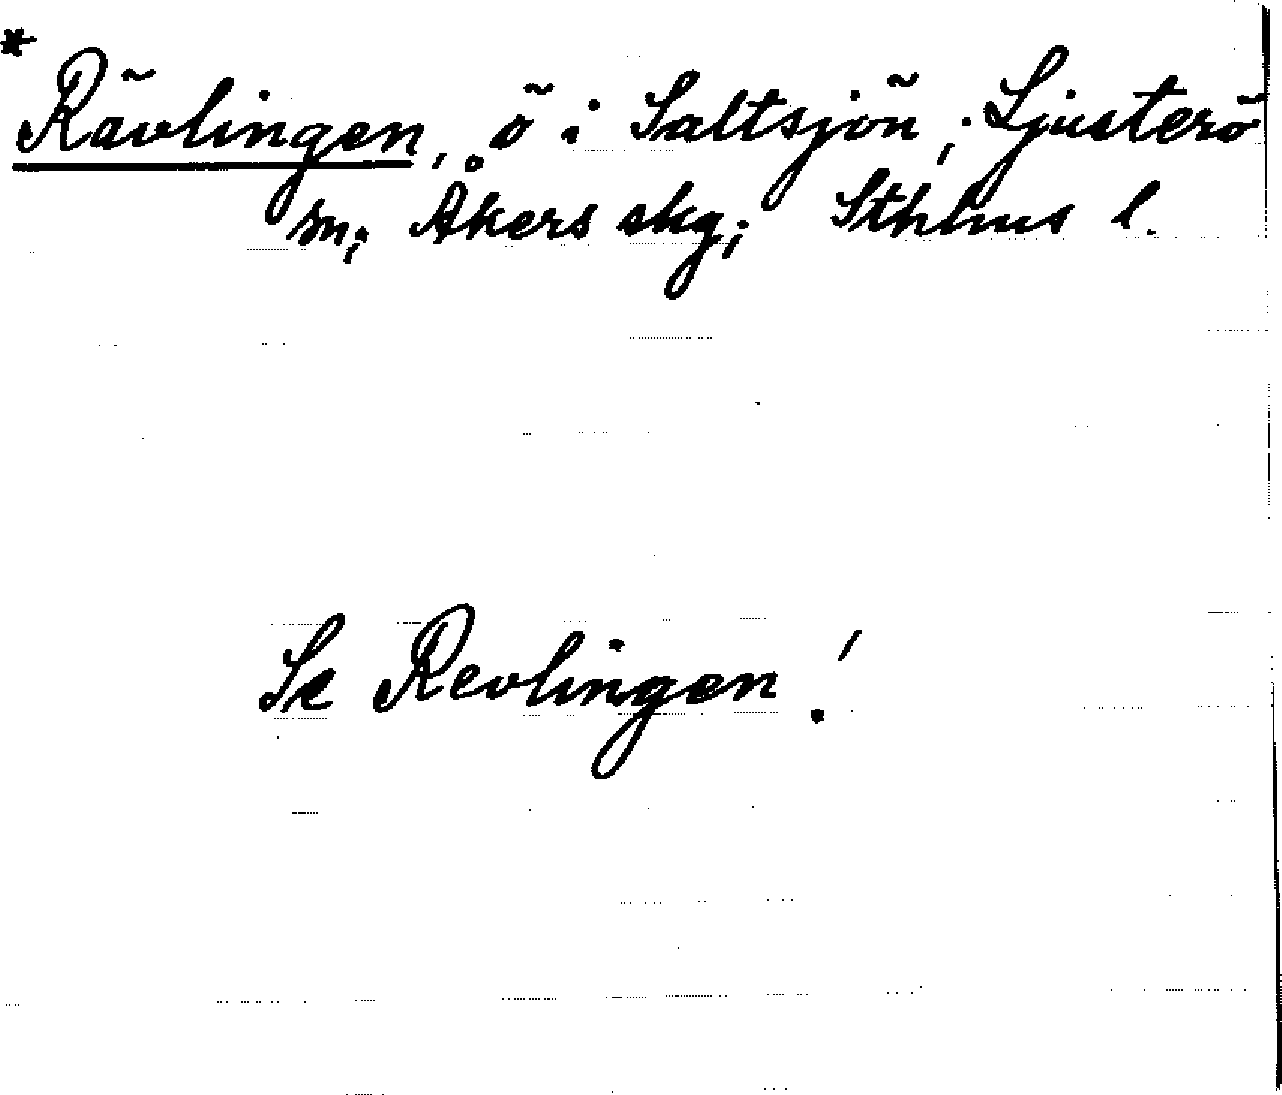 * Rävlingen, ö i Saltsjön; Ljusterö
sn; Åkers skg; Sthlms l.
Se Revlingen!